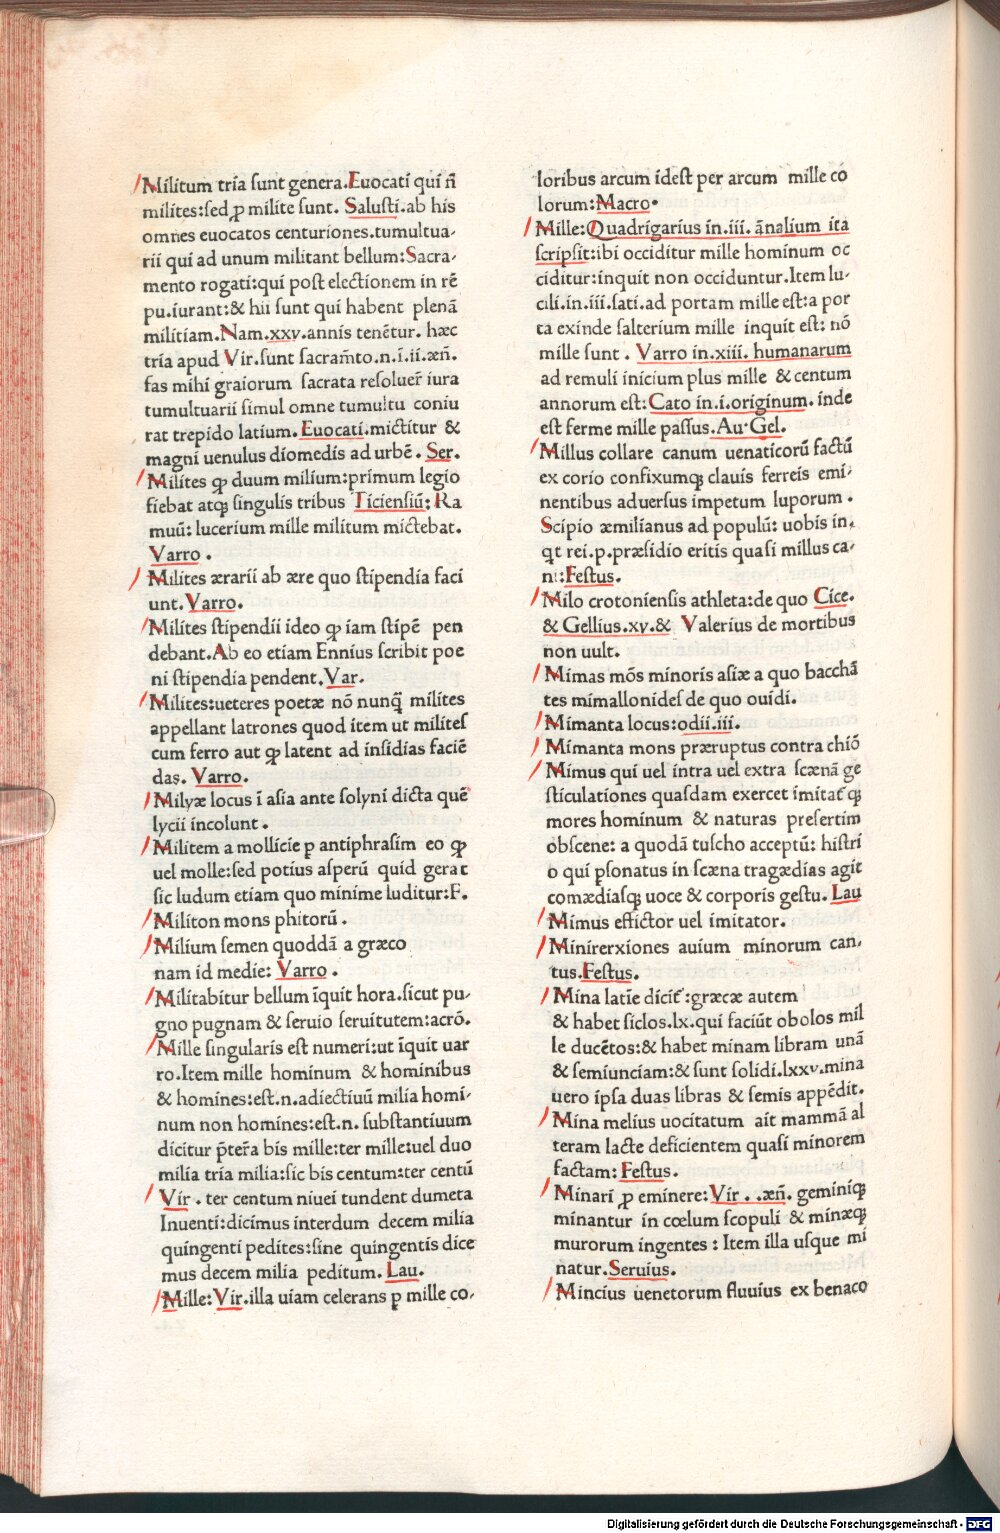 Militum tria sunt genera. Euocati qui nō
milites: sed ꝓ milite sunt. Salusti. ab his
omnes euocatos centuriones. tumultua-
rii qui ad unum militant bellum: Sacra-
mento rogati: qui post electionem in rē
pu. iurant: & hii sunt qui habent plenā
militiam. Nam. xxv. annis tenētur. hæc
tria apud Vir. sunt sacram̄to. n. i. ii. æn̄.
fas mihi graiorum sacrata resoluer̄ iura
tumultuarii simul omne tumultu coniu
rat trepido latium. Euocati. mictitur &
magni uenulus diomedis ad urbē. Ser.
Milites ꝙ duum milium: primum legio
fiebat atq; singulis tribus Ticiensiū: Ra
muū: lucerium mille militum mictebat.
Varro.
Milites ærarii ab ære quo stipendia faci
unt. Varro.
Milites stipendii ideo ꝙ iam stipē pen
debant. Ab eo etiam Ennius scribit poe
ni stipendia pendent. Var.
Milites: ueteres poetæ nō nunq̄ milites
appellant latrones quod item ut milites
cum ferro aut ꝙ latent ad insidias faciē
das. Varro.
Milyæ locus ī asia ante solyni dicta quē
lycii incolunt.
Militem a mollicie ꝑ antiphrasim eo ꝙ
uel molle: sed potius asperū quid gerat
sic ludum etiam quo minime luditur: F.
Militon mons phitorū.
Milium semen quoddā a græco
nam id medie: Varro.
Militabitur bellum īquit hora. sicut pu-
gno pugnam & seruio seruitutem: acrō.
Mille singularis est numeri: ut īquit uar
ro. Item mille hominum & hominibus
& homines: est. n. adiectiuū milia homi-
num non homines: est. n. substantiuum
dicitur p̄ter̄a bis mille: ter mille: uel duo
milia tria milia: sic bis centum: ter centū
Vir. ter centum niuei tundent dumeta
Inuenti: dicimus interdum decem milia
quingenti pedites: sine quingentis dice
mus decem milia peditum. Lau.
Mille: Vir. illa uiam celerans ꝑ mille co-
loribus arcum idest per arcum mille co
lorum: Macro.
Mille: Quadrigarius in. iii. ānalium ita
scripsit: ibi occiditur mille hominum oc
ciditur: inquit non occiduntur. Item lu-
cili. in. iii. sati. ad portam mille est: a por
ta exinde salterium mille inquit est: nō
mille sunt. Varro in. xiii. humanarum
ad remuli inicium plus mille & centum
annorum est: Cato in. i. originum. inde
est ferme mille passus. Au. Gel.
Millus collare canum uenaticorū factū
ex corio confixumq; clauis ferreis emi-
nentibus aduersus impetum luporum.
Scipio æmilianus ad populū: uobis in-
qt rei. p. præsidio eritis quasi millus ca-
ni: Festus.
Milo crotoniensis athleta: de quo Cice.
& Gellius. xv. & Valerius de mortibus
non uult.
Mimas mōs minoris asiæ a quo bacchā
tes mimallonides de quo ouidi.
Mimanta locus: odii. iii.
Mimanta mons præruptus contra chiō
Mimus qui uel intra uel extra scænā ge
sticulationes quasdam exercet imitat̄ q;
mores hominum & naturas presertim
obscene: a quodā tuscho acceptū: histri
o qui ꝑsonatus in scæna tragædias agit
comædiasq; uoce & corporis gestu. Lau
Mimus effictor uel imitator.
Minirerxiones auium minorum can-
tus. Festus.
Mina latīe dicit̄: græcæ autem
& habet siclos. lx. qui faciūt obolos mil
le ducētos: & habet minam libram unā
& semiunciam: & sunt solidi. lxxv. mina
uero ipsa duas libras & semis appēdit.
Mina melius uocitatum ait mammā al
teram lacte deficientem quasi minorem
factam: Festus.
Minari ꝓ eminere: Vir. . æn̄. geminiq;
minantur in cœlum scopuli & minæq;
murorum ingentes: Item illa usque mi
natur. Seruius.
Mincius uenetorum fluuius ex benaco
Digitalisierung gefördert durch die Deutsche Forschungsgemeinschaft - DFG